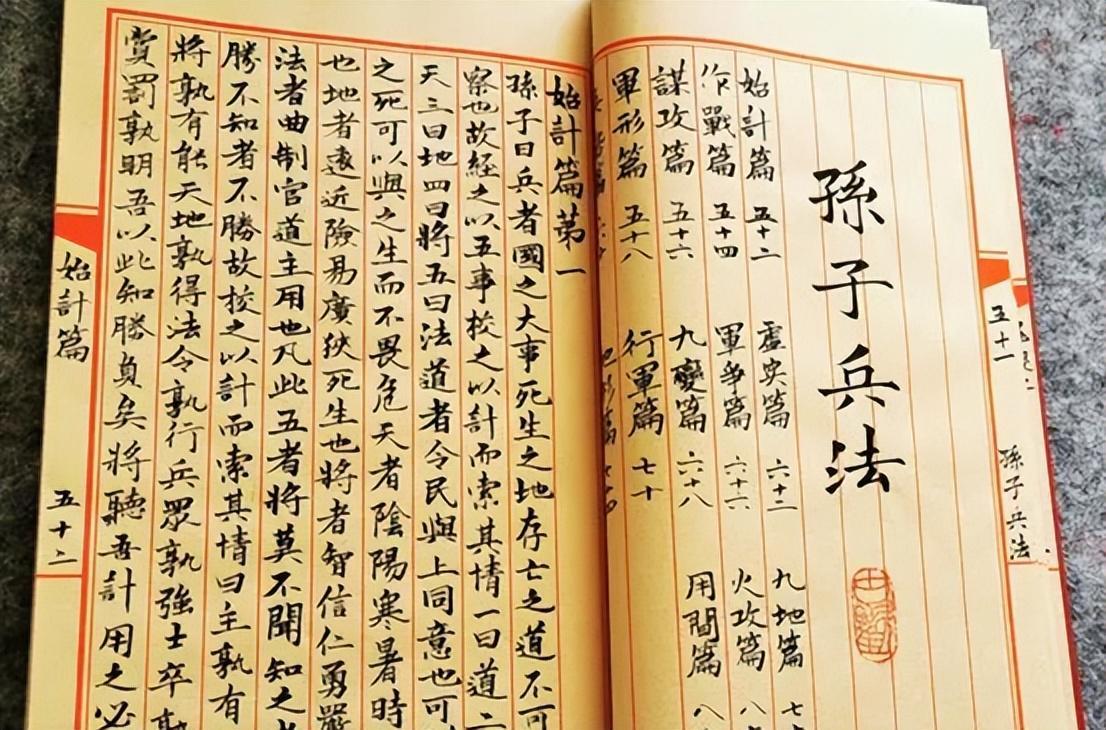 五十一 孫子兵法
孫子兵法
始計篇 五十二 虛实篇 六十三 九地篇 七
作戰篇 五十四 軍爭篇 六十六 火攻篇 八
謀攻篇 五十六 九變篇 六十八 用間篇 八
軍形篇 五十八 行軍篇 七十
始計篇第一
孫子曰兵者國之大事死生之地存亡之道不可
察也故經之以五事校之以計而索其情一曰道二
天三曰地四曰將五曰法道者令民與上同意也可
之死可以與之生而不畏危天者陰陽寒暑時
也地者遠近險易廣狹死生也將者智信仁勇嚴
法者曲制官道主用也凡此五者將莫不聞知之
勝不知者不勝故校之以計而索其情曰主孰有
將孰有能天地孰得法令孰行兵眾孰強士卒孰
賞罰孰明吾以此知勝負矣將聽吾計用之必
始計篇 五十二